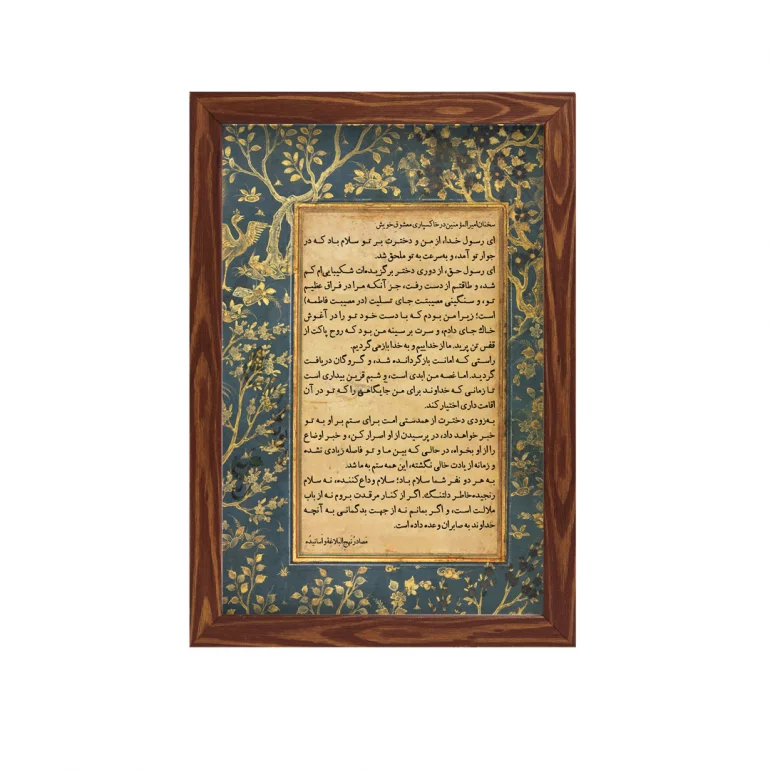 سخنان امیرالمؤمنین در خاکسپاری معشوق خویش
ای رسول خدا، از من و دخترت بر تو سلام باد که در
جوار تو آمد، و به‌سرعت به تو ملحق شد.
ای رسول حق، از دوری دختر برگزیده‌ات شکیبایی‌ام کم
شد، و طاقتم از دست رفت، جز آنکه مرا در فراق عظیم
تو، و سنگینی مصیبتت جای تسلیت (در مصیبت فاطمه)
است؛ زیرا من بودم که با دست خود تو را در آغوش
خاک جای دادم، و سرت بر سینه من بود که روح پاکت از
قفس تن پرید. ما از خداییم و به خدا بازمی‌گردیم.
راستی که امانت بازگردانده شد، و گروگان دریافت
گردید. اما غصه من ابدی است، و شبم قرین بیداری است
تا زمانی که خداوند برای من جایگاهی را که تو در آن
اقامت داری اختیار کند.
به‌زودی دخترت از همدستی امت برای ستم بر او به تو
خبر خواهد داد، در پرسیدن از او اصرار کن، و خبر اوضاع
را از او بخواه، در حالی که بین ما و تو فاصله زیادی نشده
و زمانه از یادت خالی نگشته، این همه ستم به ما شد.
به هر دو نفر شما سلام باد؛ سلام وداع‌کننده، نه سلام
رنجیده‌خاطر دلتنگ. اگر از کنار مرقدت بروم نه از باب
ملالت است، و اگر بمانم نه از جهت بدگمانی به آنچه
خداوند به صابران وعده داده است.
مصادر نهج البلاغة و أسانیده